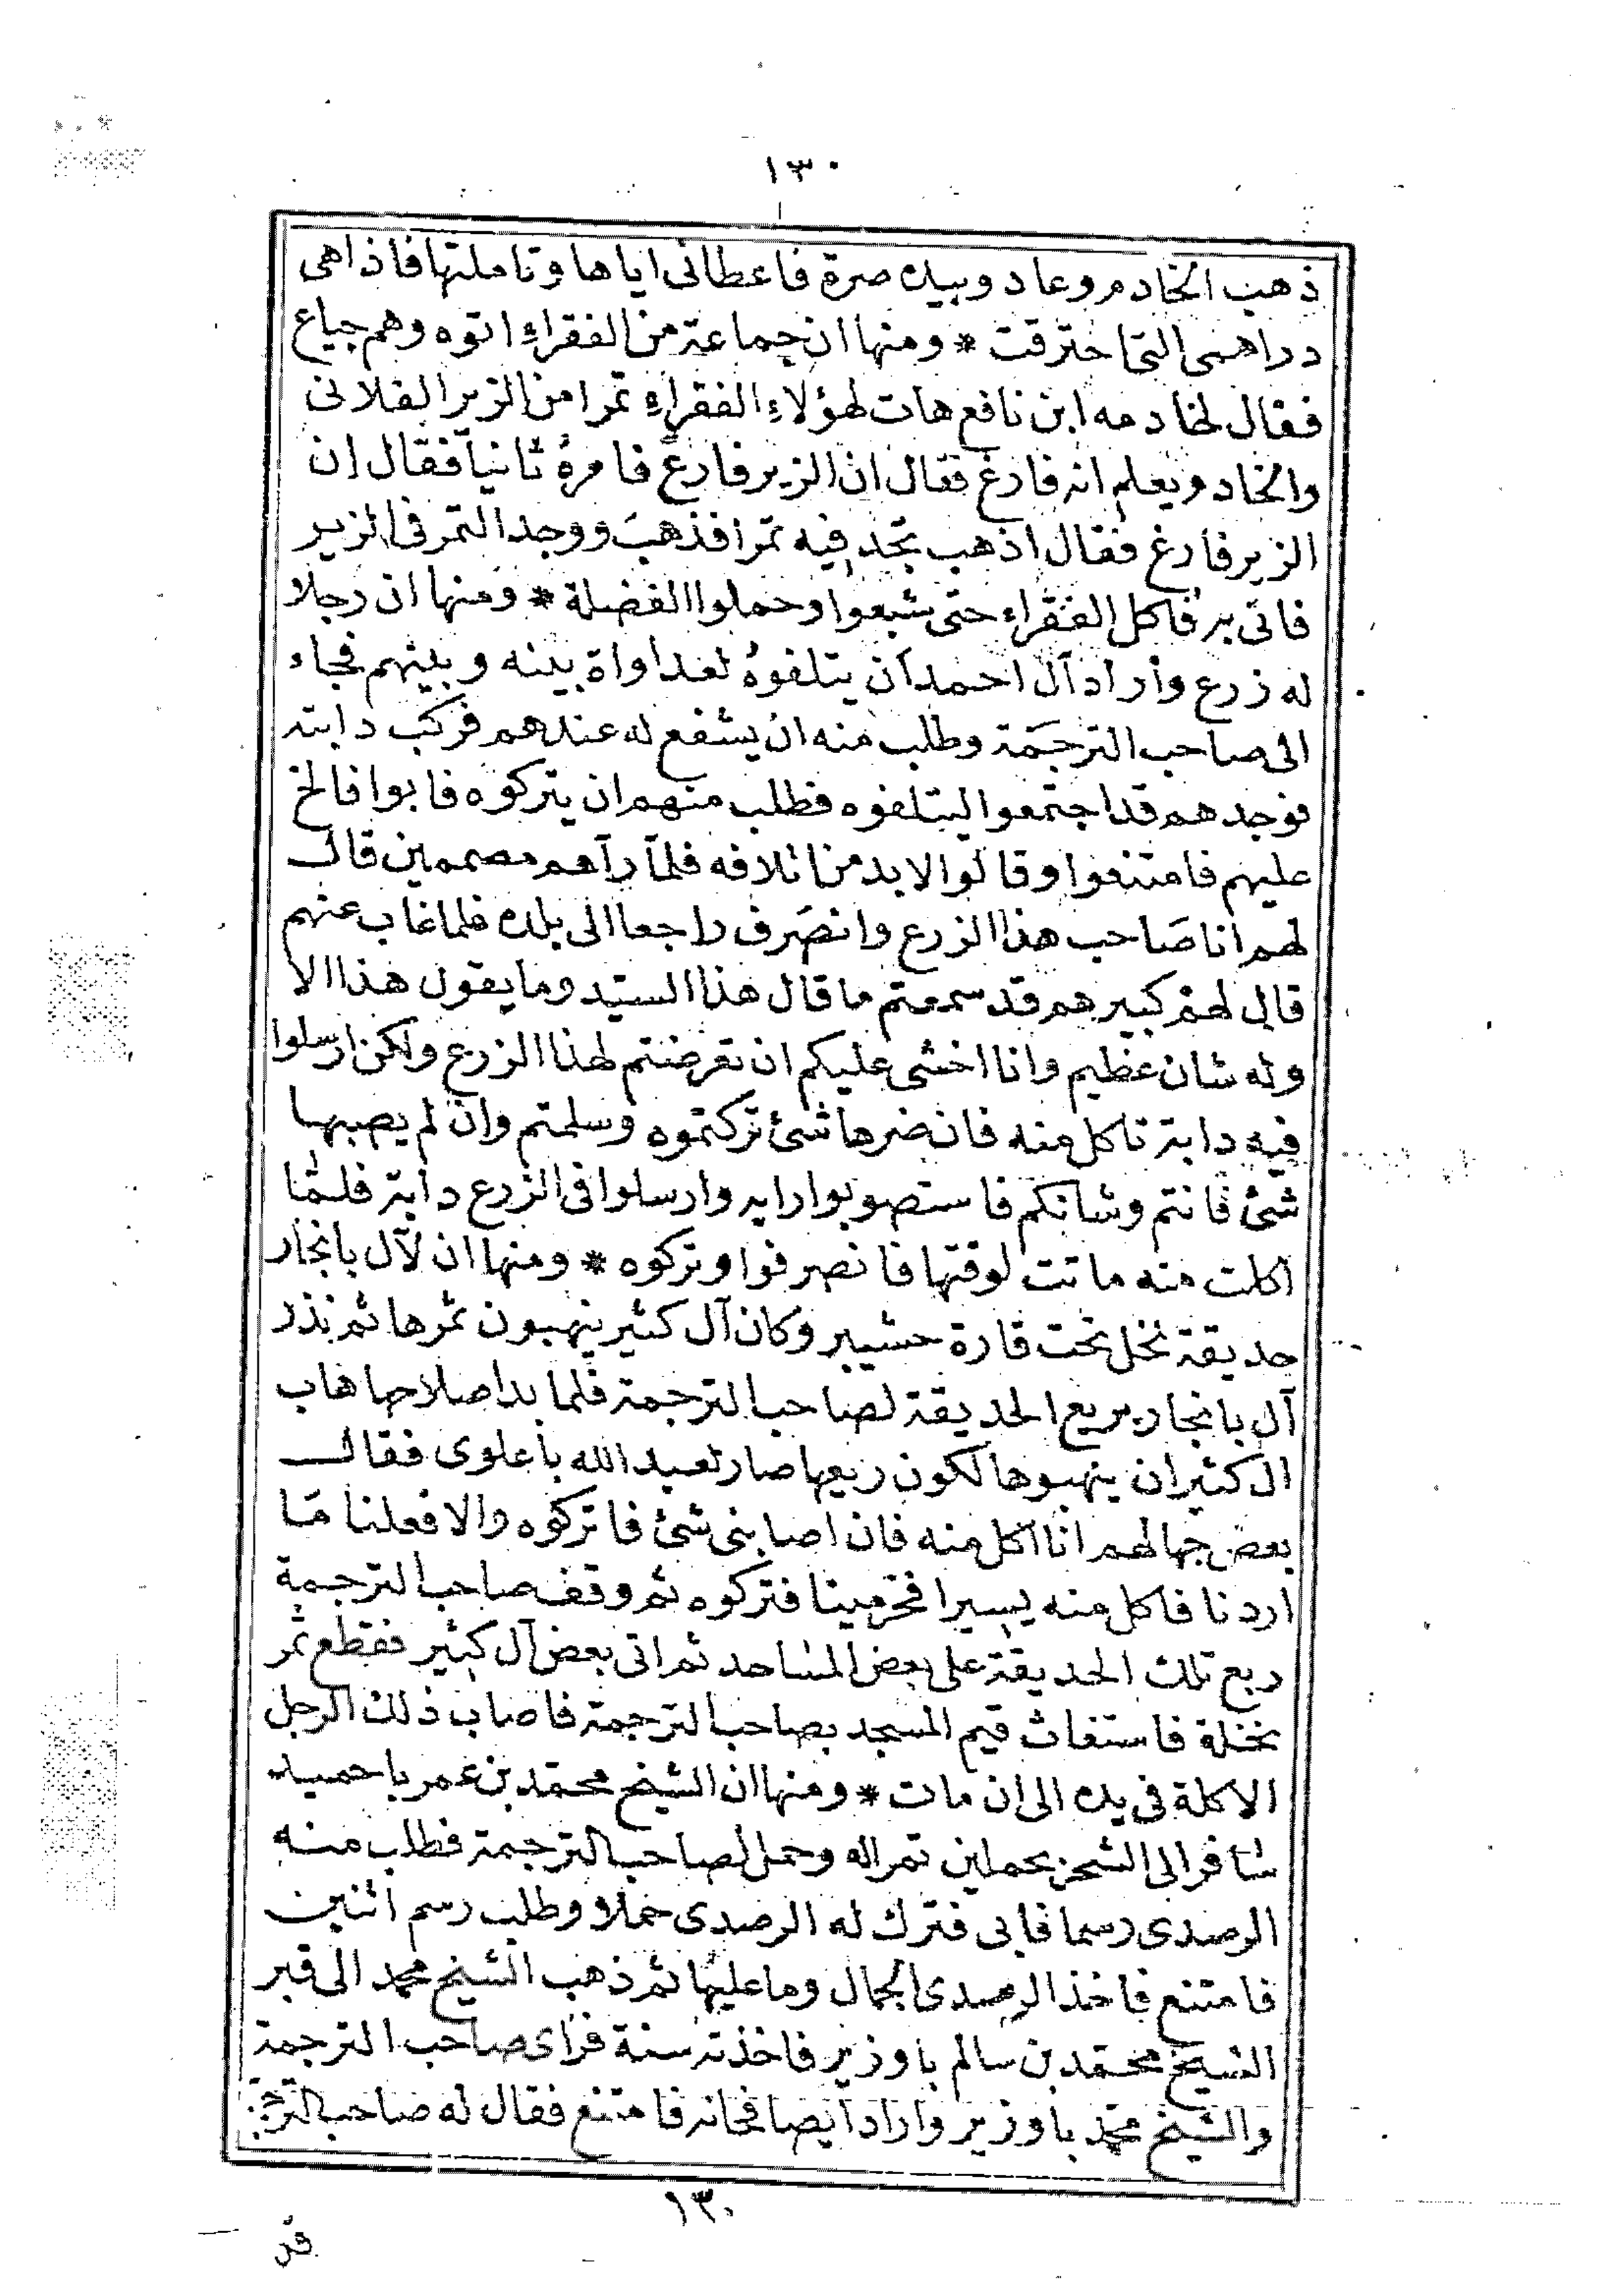 ١٣٠
ذهب الخادم وعاد وبيده صرة فاعطانى اياها وتاملتها فاذاهى
دراهمى التى احترقت * ومنها ان جماعة من الفقراء اتوه وهم جياع
فقال لخادمه ابن نافع هات لهؤلاء الفقراء تمرا من الزير الفلانى
والخادم يعلم انه فارغ فقال ان الزير فارغ فامره ثانيا فقال ان
الزير فارغ فقال اذهب تجد فيه تمرا فذهب ووجد التمر فى الزير
فاتى به فاكل الفقراء حتى شبعوا وحملوا الفضلة * ومنها ان رجلا
له زرع وأراد آل احمد ان يتلفوه لعداواة بينه وبينهم فجاء
الى صاحب الترجمة وطلب منه ان يشفع له عندهم فركب دابته
فوجدهم قد اجتمعوا ليتلفوه فطلب منهم ان يتركوه فابوا فالح
عليهم فامتنعوا وقالوا لا بد من اتلافه فلما رآهم مصممين قال
لهم انا صاحب هذا الزرع وانصرف راجعا الى بلده فلما غاب عنهم
قال لهم كبيرهم قد سمعتم ما قال هذا السيد وما يقول هذا الا
وله شان عظيم وانا اخشى عليكم ان تعرضتم لهذا الزرع ولكن ارسلوا
فيه دابة تاكل منه فان ضرها شئ تركتموه وسلمتم وان لم يصبها
شئ فانتم وشانكم فاستصوبوا رايه وارسلوا فى الزرع دابة فلما
اكلت منه ماتت لوقتها فانصرفوا وتركوه * ومنها ان لآل بانجار
حديقة نخل تحت قارة حشيبر وكان آل كثير ينهبون ثمرها ثم نذر
آل بانجار بربع الحديقة لصاحب الترجمة فلما بدا صلاحها هاب
ال كثير ان ينهبوها لكون ربعها صار لعبد الله باعلوى فقال
بعض جهالهم انا آكل منه فان اصابنى شئ فاتركوه والا فعلنا ما
اردنا فاكل منه يسيرا فخر ميتا فتركوه ثم وقف صاحب الترجمة
ربع تلك الحديقة على بعض المساجد ثم اتى بعض آل كثير فقطع ثمر
نخلة فاستغاث قيم المسجد بصاحب الترجمة فاصاب ذلك الرجل
الاكلة فى يده الى ان مات * ومنها ان الشيخ محمد بن عمر باحميد
سافر الى الشحر بحملين تمر اله وحمل لصاحب الترجمة فطلب منه
الرصدى رسما فابى فترك له الرصدى حملا وطلب رسم اثنين
فامتنع فاخذ الرصدى الجمال وما عليها ثم ذهب الشيخ محمد الى قبر
الشيخ محمد بن سالم باوزير فاخذته سنة فراى صاحب الترجمة
والشيخ محمد باوزير وارادا يصافحانه فامتنع فقال له صاحب الترجمة
١٣٠